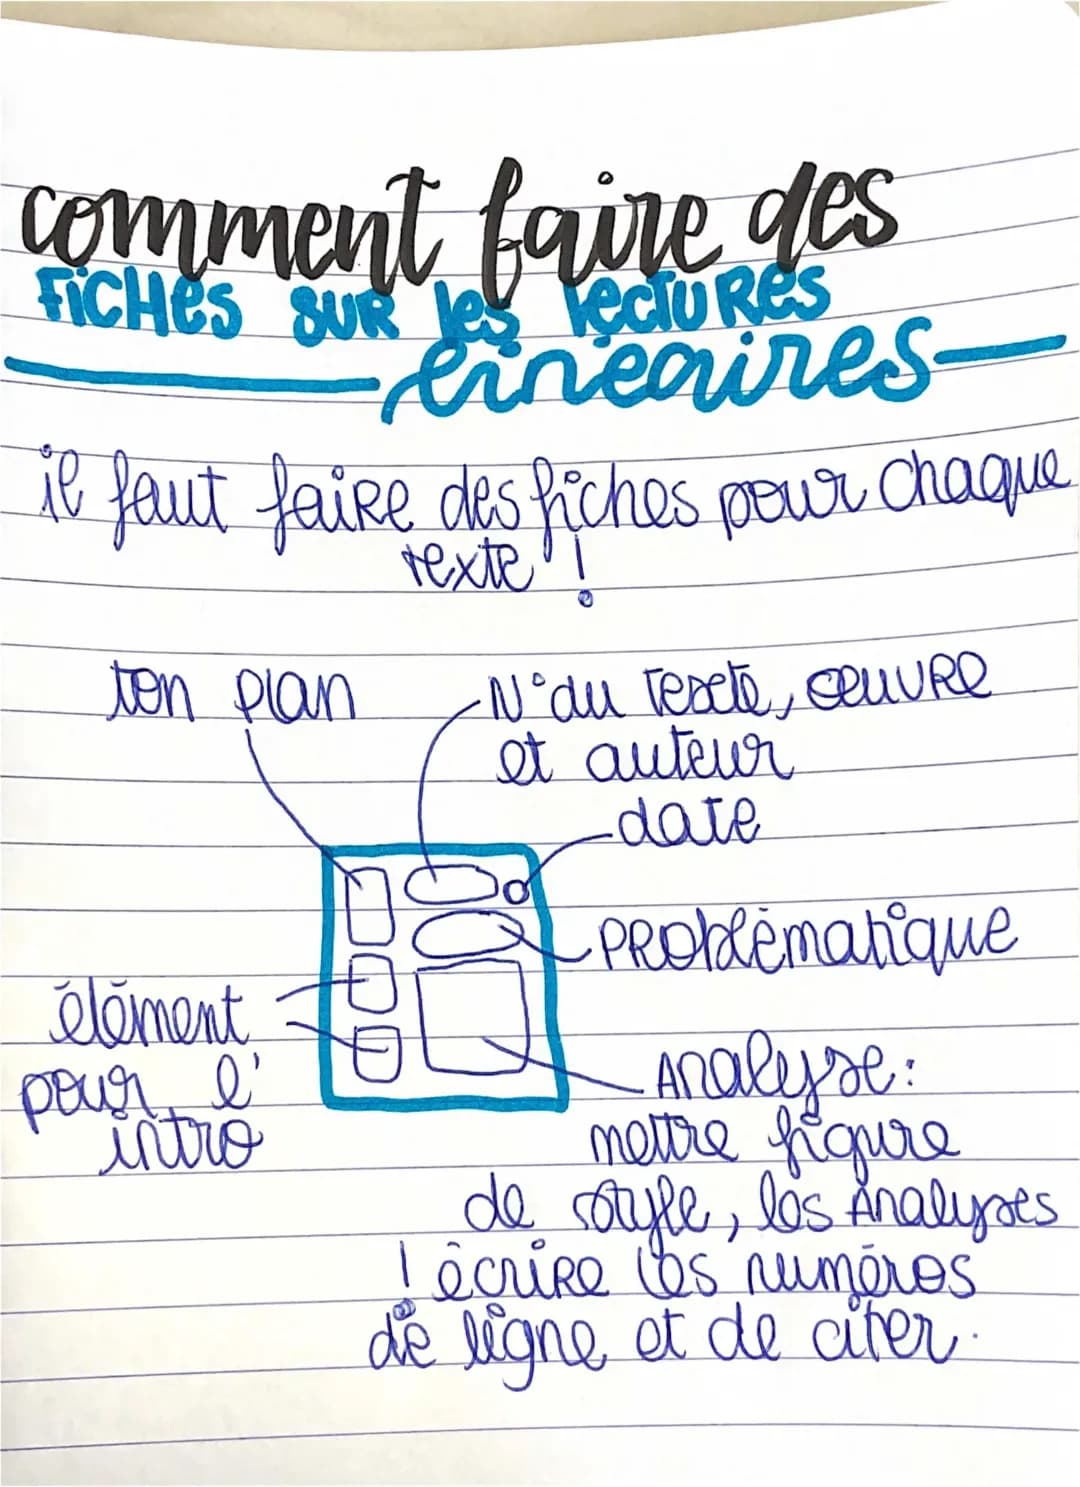 comment faire des
FiCHes SUR les lectURes
linéaires
il faut faire des fiches pour chaque
texte !
ton plan
N° du texte, œuvre
et auteur
date
PROblématique
élément
pour l'
intro
Analyse:
mettre figure
de style, les Analyses
! écrire les numéros
de ligne et de citer.